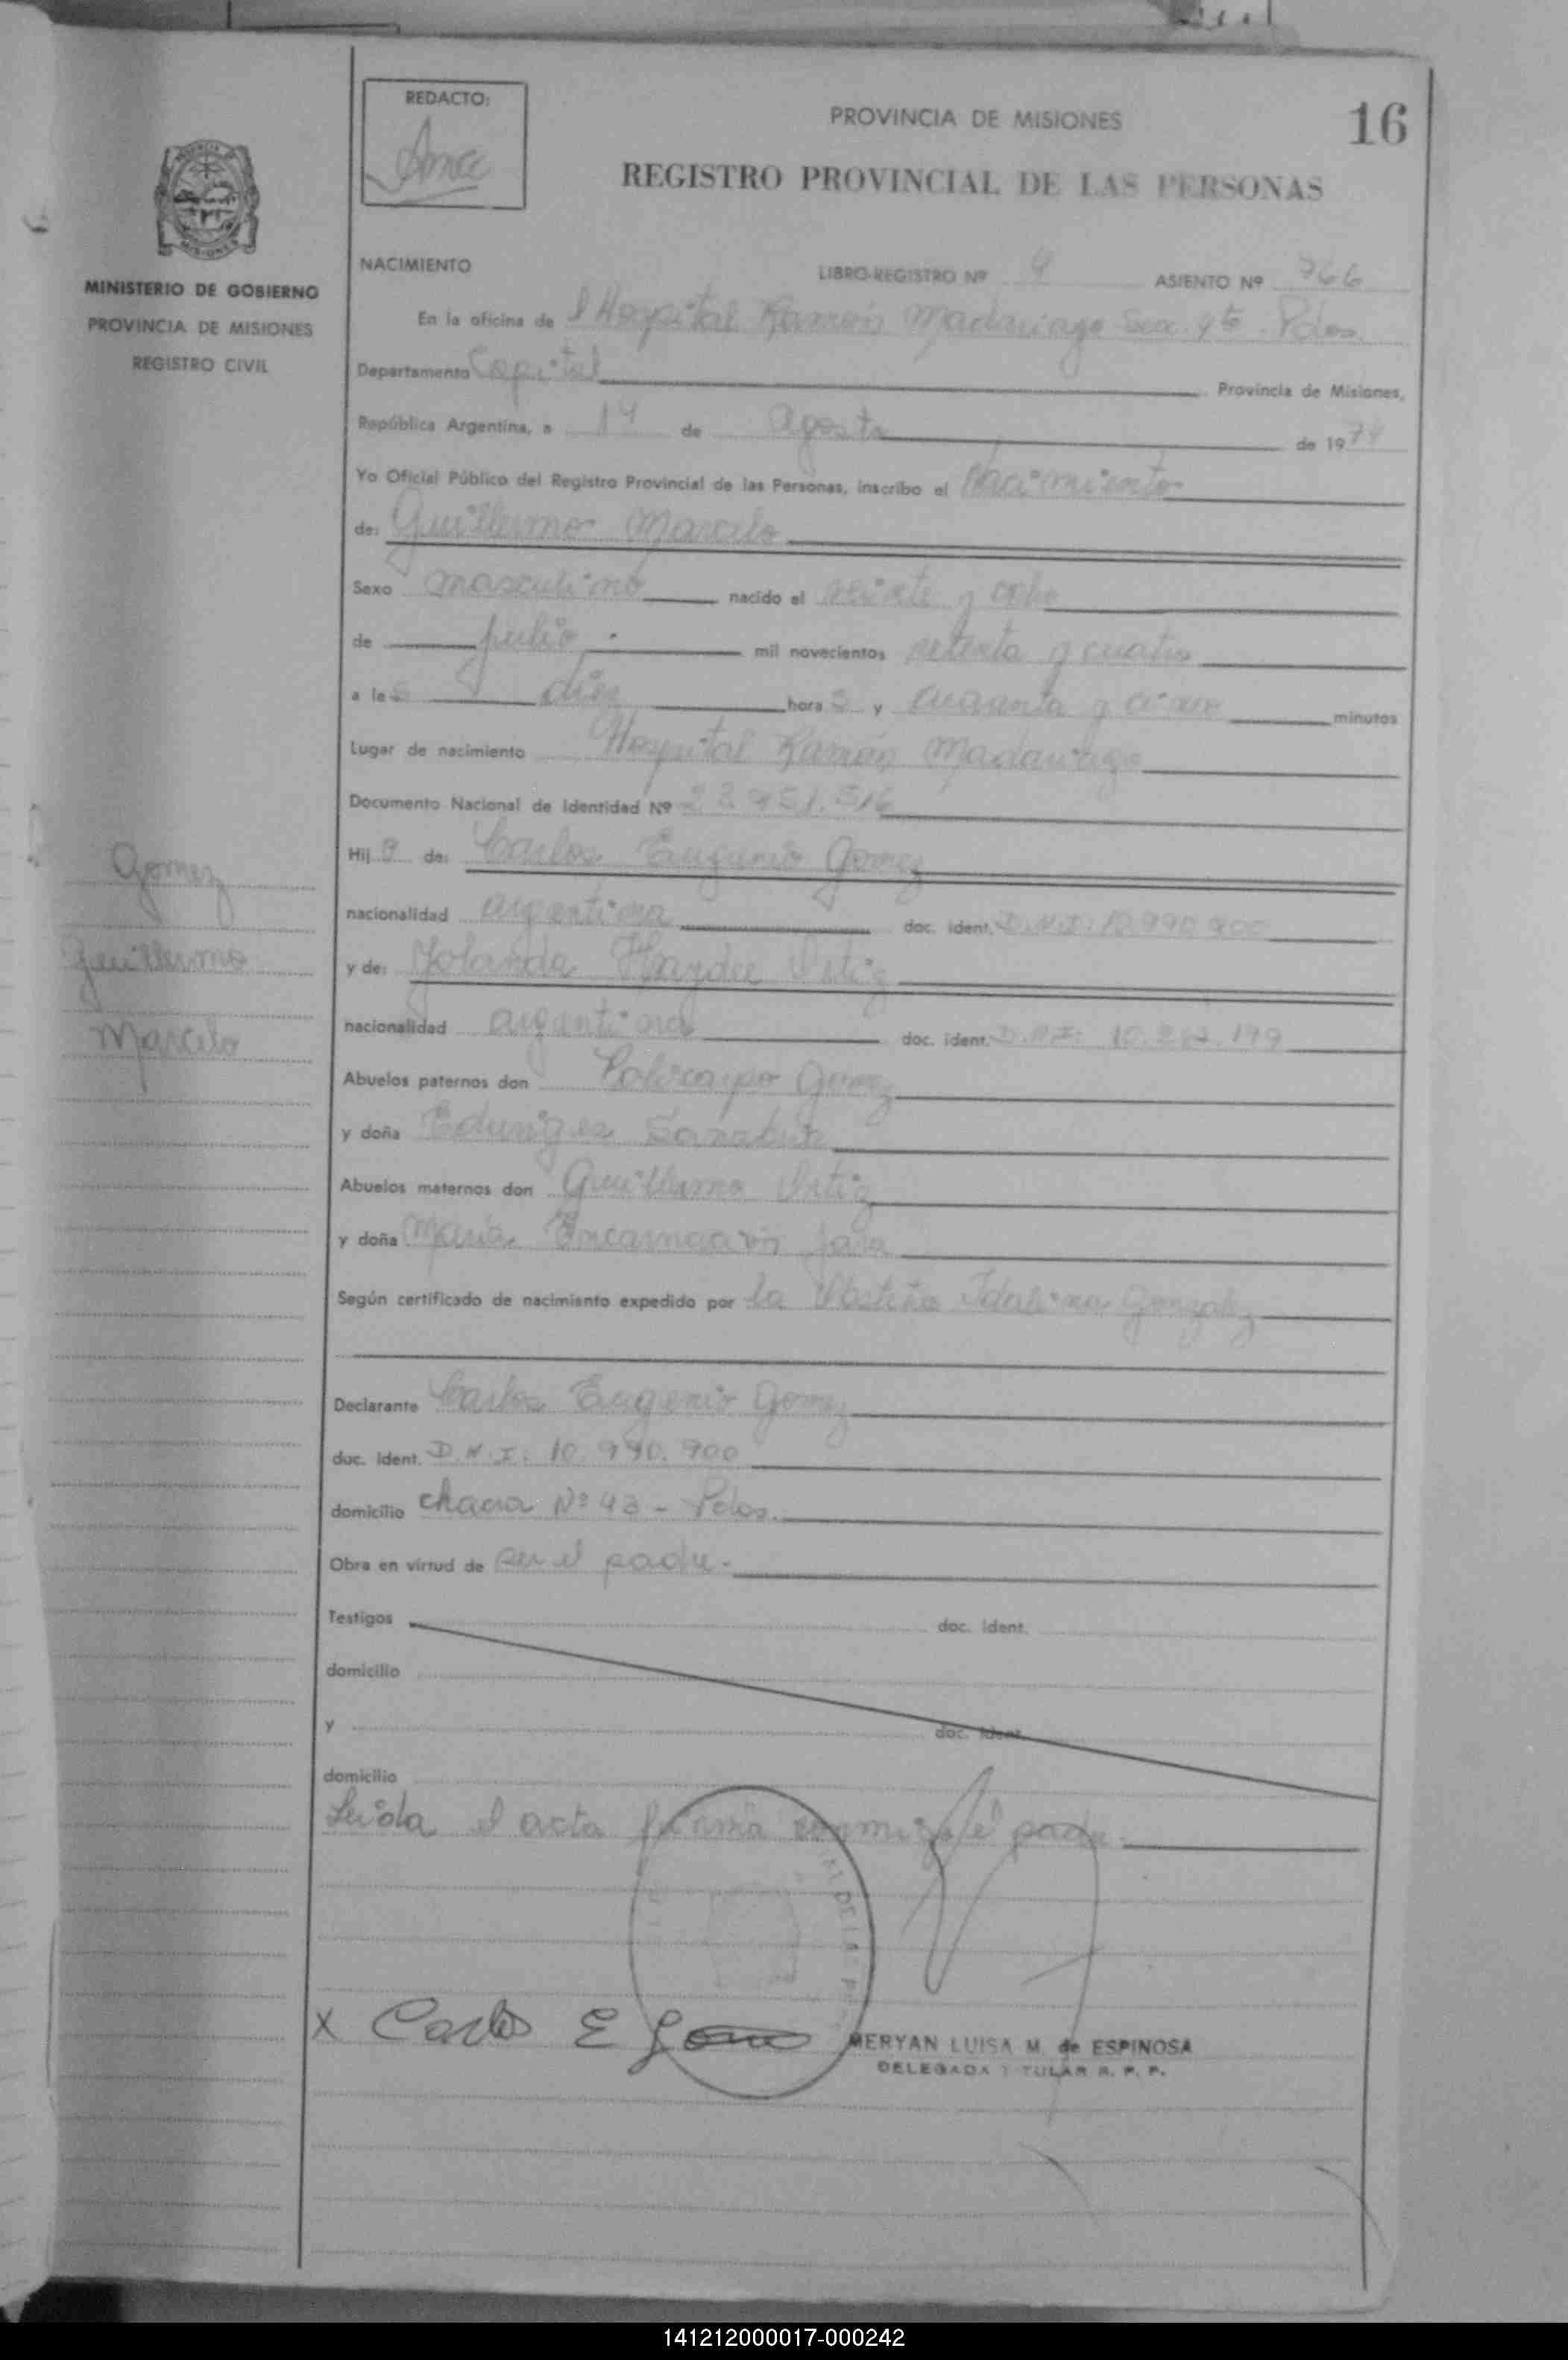 REDACTO:
PROVINCIA DE MISIONES
16
REGISTRO PROVINCIAL DE LAS PERSONAS
MINISTERIO DE GOBIERNO
PROVINCIA DE MISIONES
REGISTRO CIVIL
NACIMIENTO LIBRO-REGISTRO Nº 4 ASIENTO Nº 766
En la oficina de l Hospital Ramón Madariaga Sec. 4ta. Pdas.
Departamento Capital Provincia de Misiones,
República Argentina, a 14 de agosto de 1974
Yo Oficial Público del Registro Provincial de las Personas, inscribo el Nacimiento
de: Guillermo Marcelo
Sexo masculino nacido el veinte y ocho
de julio mil novecientos setenta y cuatro
a las diez horas y cuarenta y cinco minutos
Lugar de nacimiento Hospital Ramón Madariaga
Documento Nacional de Identidad Nº
Hijo de: Carlos Eugenio Gomez
nacionalidad argentina doc. ident. D.N.I. 10.990.900
y de: Yolanda Haydee Ortiz
nacionalidad argentina doc. ident. D.N.I:
Abuelos paternos don Policarpo Gomez
y doña Eduviges
Abuelos maternos don Guillermo Ortiz
y doña María Encarnación Jara
Según certificado de nacimiento expedido por la Obstetra Idalina Gonzalez
Declarante Carlos Eugenio Gomez
doc. ident. D.N.I: 10.990.900
domicilio chacra Nº 43 - Pdas.
Obra en virtud de ser el padre.
Testigos doc. ident.
domicilio
y doc. ident.
domicilio
Leída el acta firma conmigo el padre.
Gomez
Guillermo
Marcelo
X Carlos E Gomez
MERYAN LUISA M. de ESPINOSA
DELEGADA TITULAR R. P. P.
141212000017-000242